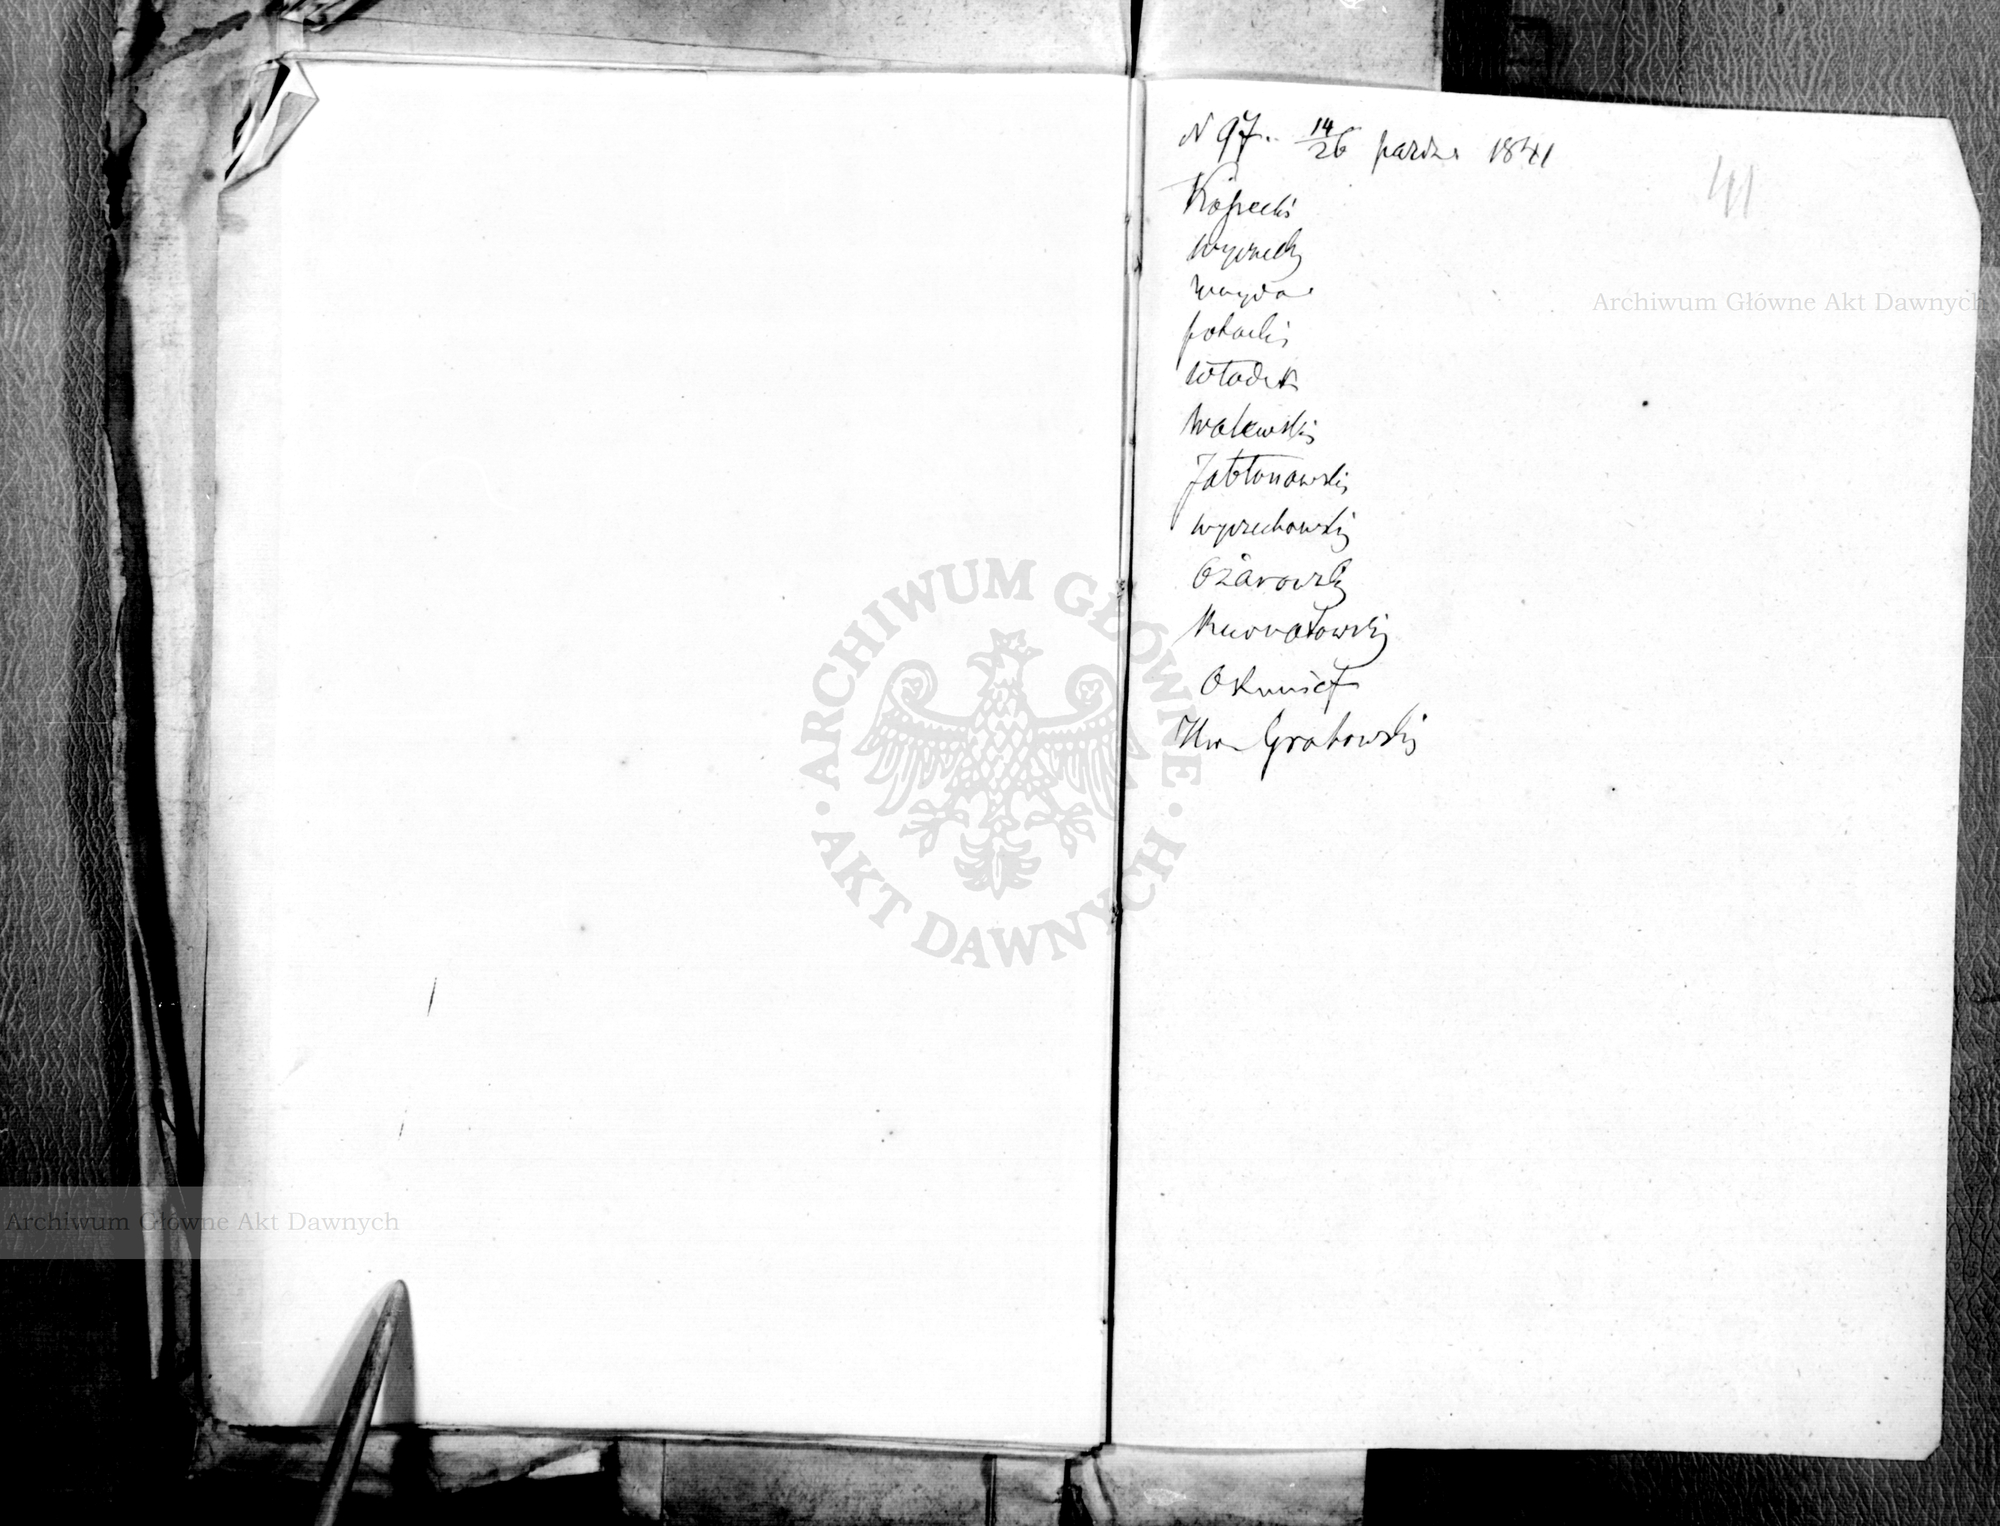 N 97. 14/26 pazdz. 1841
41
Kossecki
Wyczechy
Wayda
potocki
Włodek
Walewski
Jabłonowski
Wyczechowski
Ożarowski
Kurnatowski
Okunief
Hr. Grabowski
Archiwum Główne Akt Dawnych
ARCHIWUM GŁÓWNE
AKT DAWNYCH
Archiwum Główne Akt Dawnych